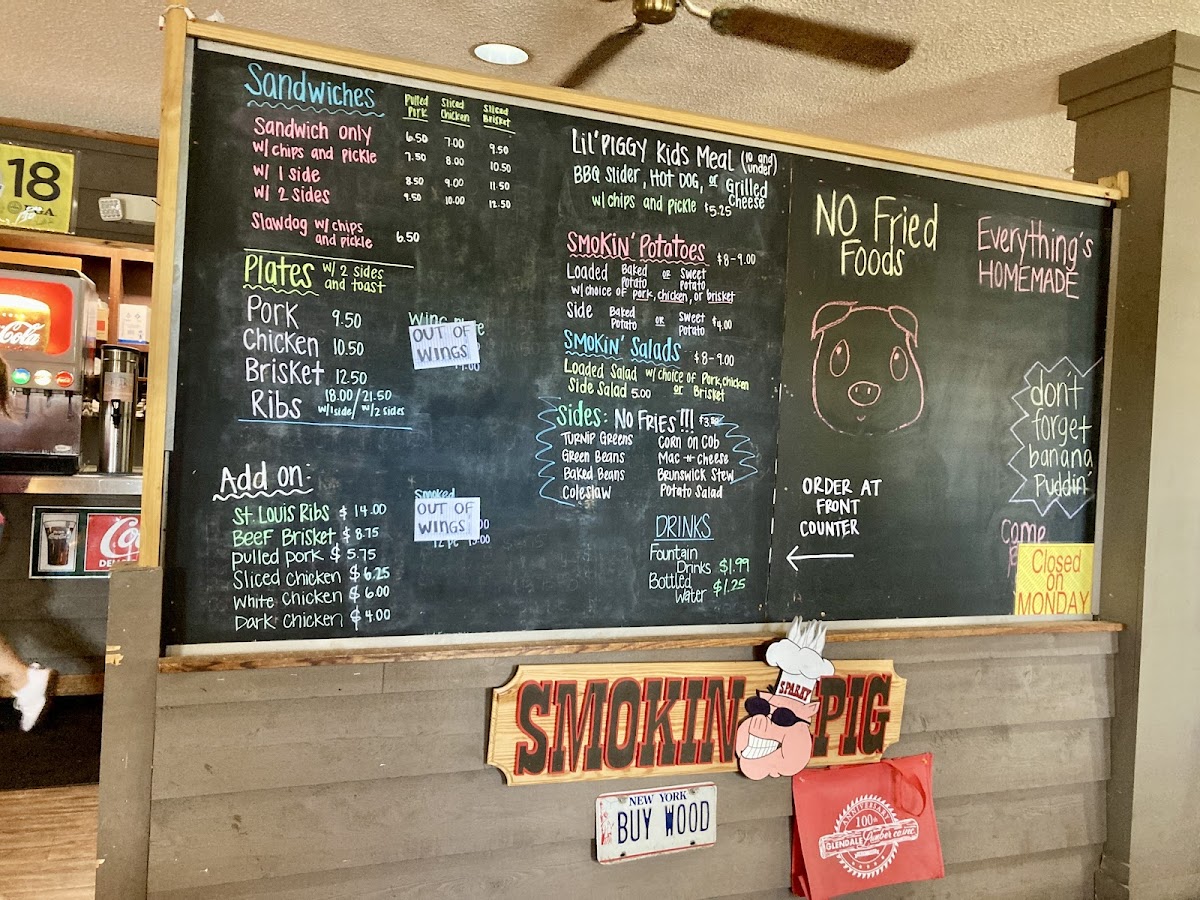 Sandwiches
Pulled Pork Sliced Chicken Sliced Brisket
Sandwich only 6.50 7.00 9.50
w/ chips and pickle 7.50 8.00 10.50
w/ 1 side 8.50 9.00 11.50
w/ 2 sides 9.50 10.00 12.50
Slawdog w/ chips and pickle 6.50
Plates w/ 2 sides and toast
Pork 9.50
Chicken 10.50
Brisket 12.50
Ribs 18.00/21.50
w/ 1 side/ w/ 2 sides
OUT OF
WINGS
Add on:
St. Louis Ribs $ 14.00
Beef Brisket $ 8.75
Pulled pork $ 5.75
Sliced chicken $ 6.25
White chicken $ 6.00
Dark chicken $ 4.00
Smoked
OUT OF
WINGS
12 pc
Lil' PIGGY Kids Meal (10 and under)
BBQ Slider, Hot Dog, or Grilled Cheese
w/ chips and pickle $5.25
Smokin' Potatoes $8-9.00
Loaded Baked Potato or Sweet Potato
w/ choice of pork, chicken, or brisket
Side Baked Potato or Sweet Potato $4.00
Smokin' Salads $8-9.00
Loaded Salad w/ choice of Pork, chicken
Side Salad 5.00 or Brisket
Sides: NO FRIES!!! $3.50
Turnip Greens Corn on Cob
Green Beans Mac-n-Cheese
Baked Beans Brunswick Stew
Coleslaw Potato Salad
DRINKS
Fountain Drinks $1.99
Bottled Water $1.25
NO Fried
Foods
Everything's
HOMEMADE
don't
forget
banana
Puddin'
ORDER AT
FRONT
COUNTER
Come
Closed
on
MONDAY
SMOKIN PIG
SPARKY
NEW YORK
BUY WOOD
ANNIVERSARY
100th
GLENDALE Lumber co inc.
18
Coca-Cola